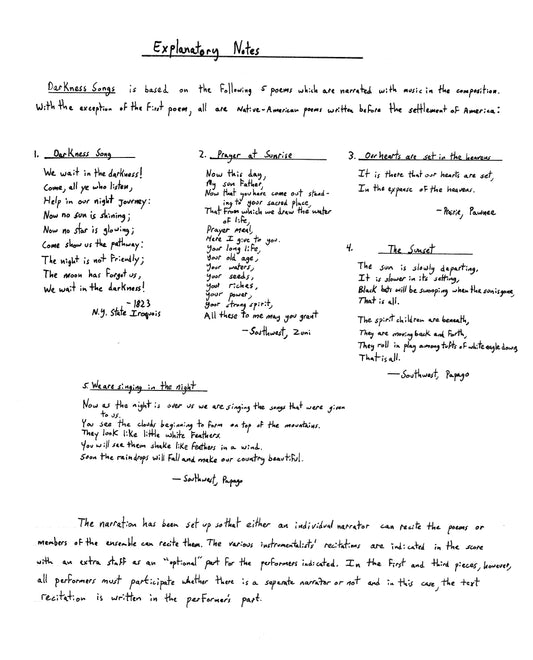 Explanatory Notes
Darkness Songs is based on the following 5 poems which are narrated with music in the composition.
With the exception of the first poem, all are Native-American poems written before the settlement of America:
1. Darkness Song
We wait in the darkness!
Come, all ye who listen,
Help in our night journey:
Now no sun is shining;
Now no star is glowing;
Come show us the pathway:
The night is not friendly;
The moon has forgot us,
We wait in the darkness!
- 1823
N.Y. State Iroquois
2. Prayer at Sunrise
Now this day,
My sun father,
Now that you have come out stand-
ing to your sacred place,
That from which we drew the water
of life,
Prayer meal,
Here I give to you.
Your long life,
Your old age,
Your waters,
Your seeds,
Your riches,
Your power,
Your strong spirit,
All these to me may you grant
- Southwest, Zuni
3. Our hearts are set in the heavens
It is there that our hearts are set,
In the expanse of the heavens.
- Prairie, Pawnee
4. The Sunset
The sun is slowly departing,
It is slower in its setting,
Black bats will be swooping when the sun is gone,
That is all.
The spirit children are beneath,
They are moving back and forth,
They roll in play among tufts of white eagle down,
That is all.
- Southwest, Papago
5. We are singing in the night
Now as the night is over us we are singing the songs that were given
to us.
You see the clouds beginning to form on top of the mountains.
They look like little white feathers.
You will see them shake like feathers in a wind.
Soon the raindrops will fall and make our country beautiful.
- Southwest, Papago
The narration has been set up so that either an individual narrator can recite the poems or
members of the ensemble can recite them. The various instrumentalists' recitations are indicated in the score
with an extra staff as an "optional" part for the performers indicated. In the first and third pieces, however,
all performers must participate whether there is a separate narrator or not and in this case, the text
recitation is written in the performer's part.